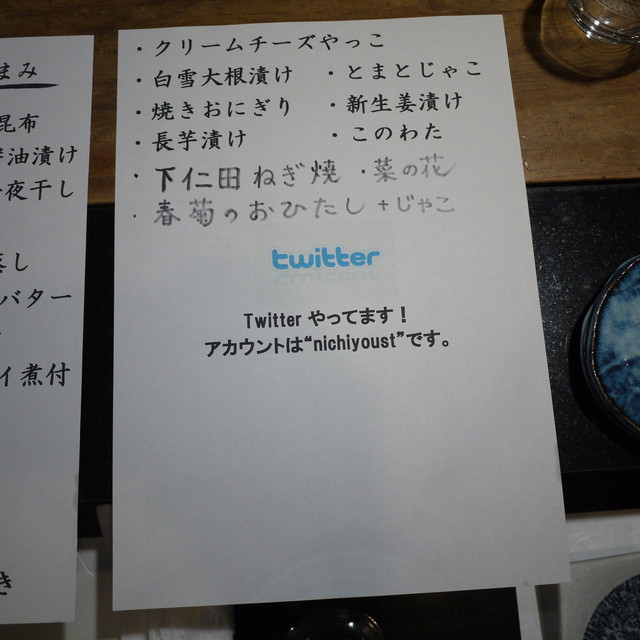 まみ
昆布
油漬け
夜干し
し
バター
イ煮付
き
・クリームチーズやっこ
・白雪大根漬け ・とまとじゃこ
・焼きおにぎり ・新生姜漬け
・長芋漬け ・このわた
・下仁田ねぎ焼 ・菜の花
・春菊のおひたし +じゃこ
twitter
Twitter やってます！
アカウントは“nichiyoust”です。